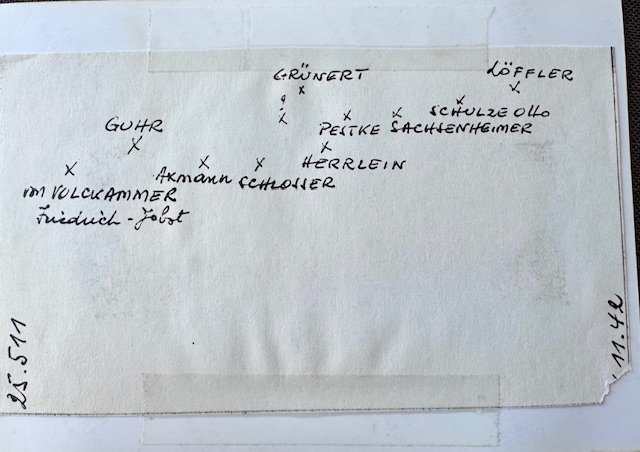 GRÜNERT
LÖFFLER
x
x
?
x
SCHULZE Otto
GUHR
x
x
x
x
PESTKE SACHSENHEIMER
x
x
x
x
x
HERRLEIN
Axmann SCHLOSSER
von VOLCKAMMER
Friedrich-Jobst
25.511
11.42